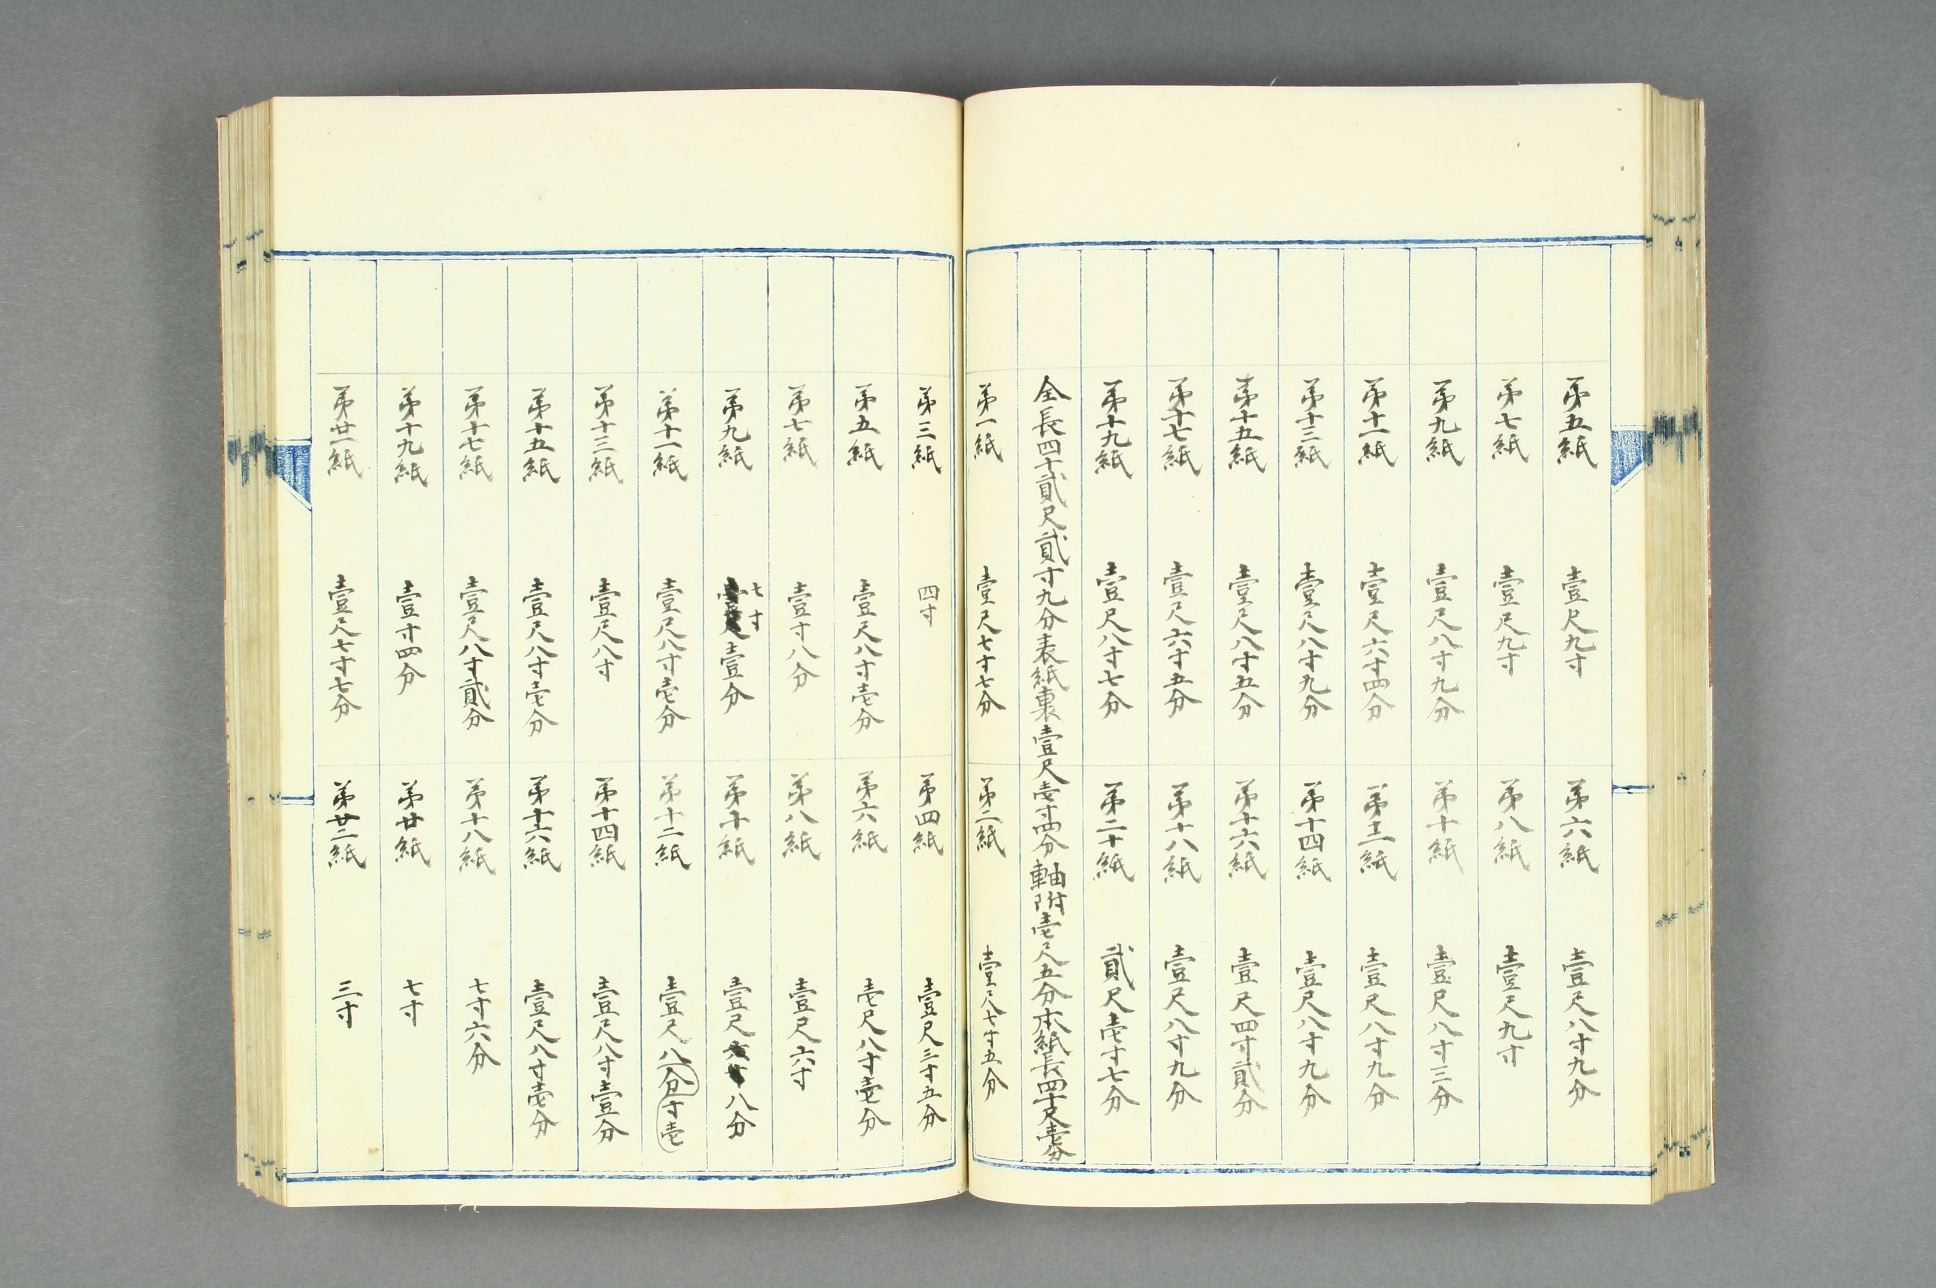 第五紙 壹尺九寸 第六紙 壹尺八寸九分
第七紙 壹尺九寸 第八紙 壹尺九寸
第九紙 壹尺八寸九分 第十紙 壹尺八寸三分
第十一紙 壹尺六寸四分 第十二紙 壹尺八寸九分
第十三紙 壹尺八寸九分 第十四紙 壹尺八寸九分
第十五紙 壹尺八寸五分 第十六紙 壹尺四寸貳分
第十七紙 壹尺六寸五分 第十八紙 壹尺八寸九分
第十九紙 壹尺八寸七分 第二十紙 貳尺壹寸七分
全長四十貳尺貳寸九分表紙裏壹尺壱寸四分軸附壱尺五分本紙長四十尺壱分
第一紙 壹尺七寸七分 第二紙 壹尺七寸五分
第三紙 四寸 第四紙 壹尺三寸五分
第五紙 壹尺八寸壱分 第六紙 壱尺八寸壱分
第七紙 壹寸八分 第八紙 壹尺六寸
第九紙 七寸壹分 第十紙 壹尺八分
第十一紙 壹尺八寸壱分 第十二紙 壹尺八分寸壱
第十三紙 壹尺八寸 第十四紙 壹尺八寸壹分
第十五紙 壹尺八寸壱分 第十六紙 壹尺八寸壱分
第十七紙 壹尺八寸貳分 第十八紙 七寸六分
第十九紙 壹寸四分 第廿紙 七寸
第廿一紙 壹尺七寸七分 第廿二紙 三寸